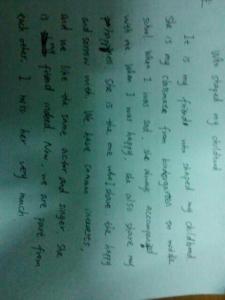 Who shaped my childhood
It is my friends who shaped my childhood.
She is my classmate from kindergarten to middle
school. When I was sad, she always accompanied
with me. When I was happy, she also share my
happiness. She is the one who I share the happy
and sorrow with. We have common interests,
and we like the same actor and singer. She
is my friend indeed. Now, we are part from
each other. I miss her very much.